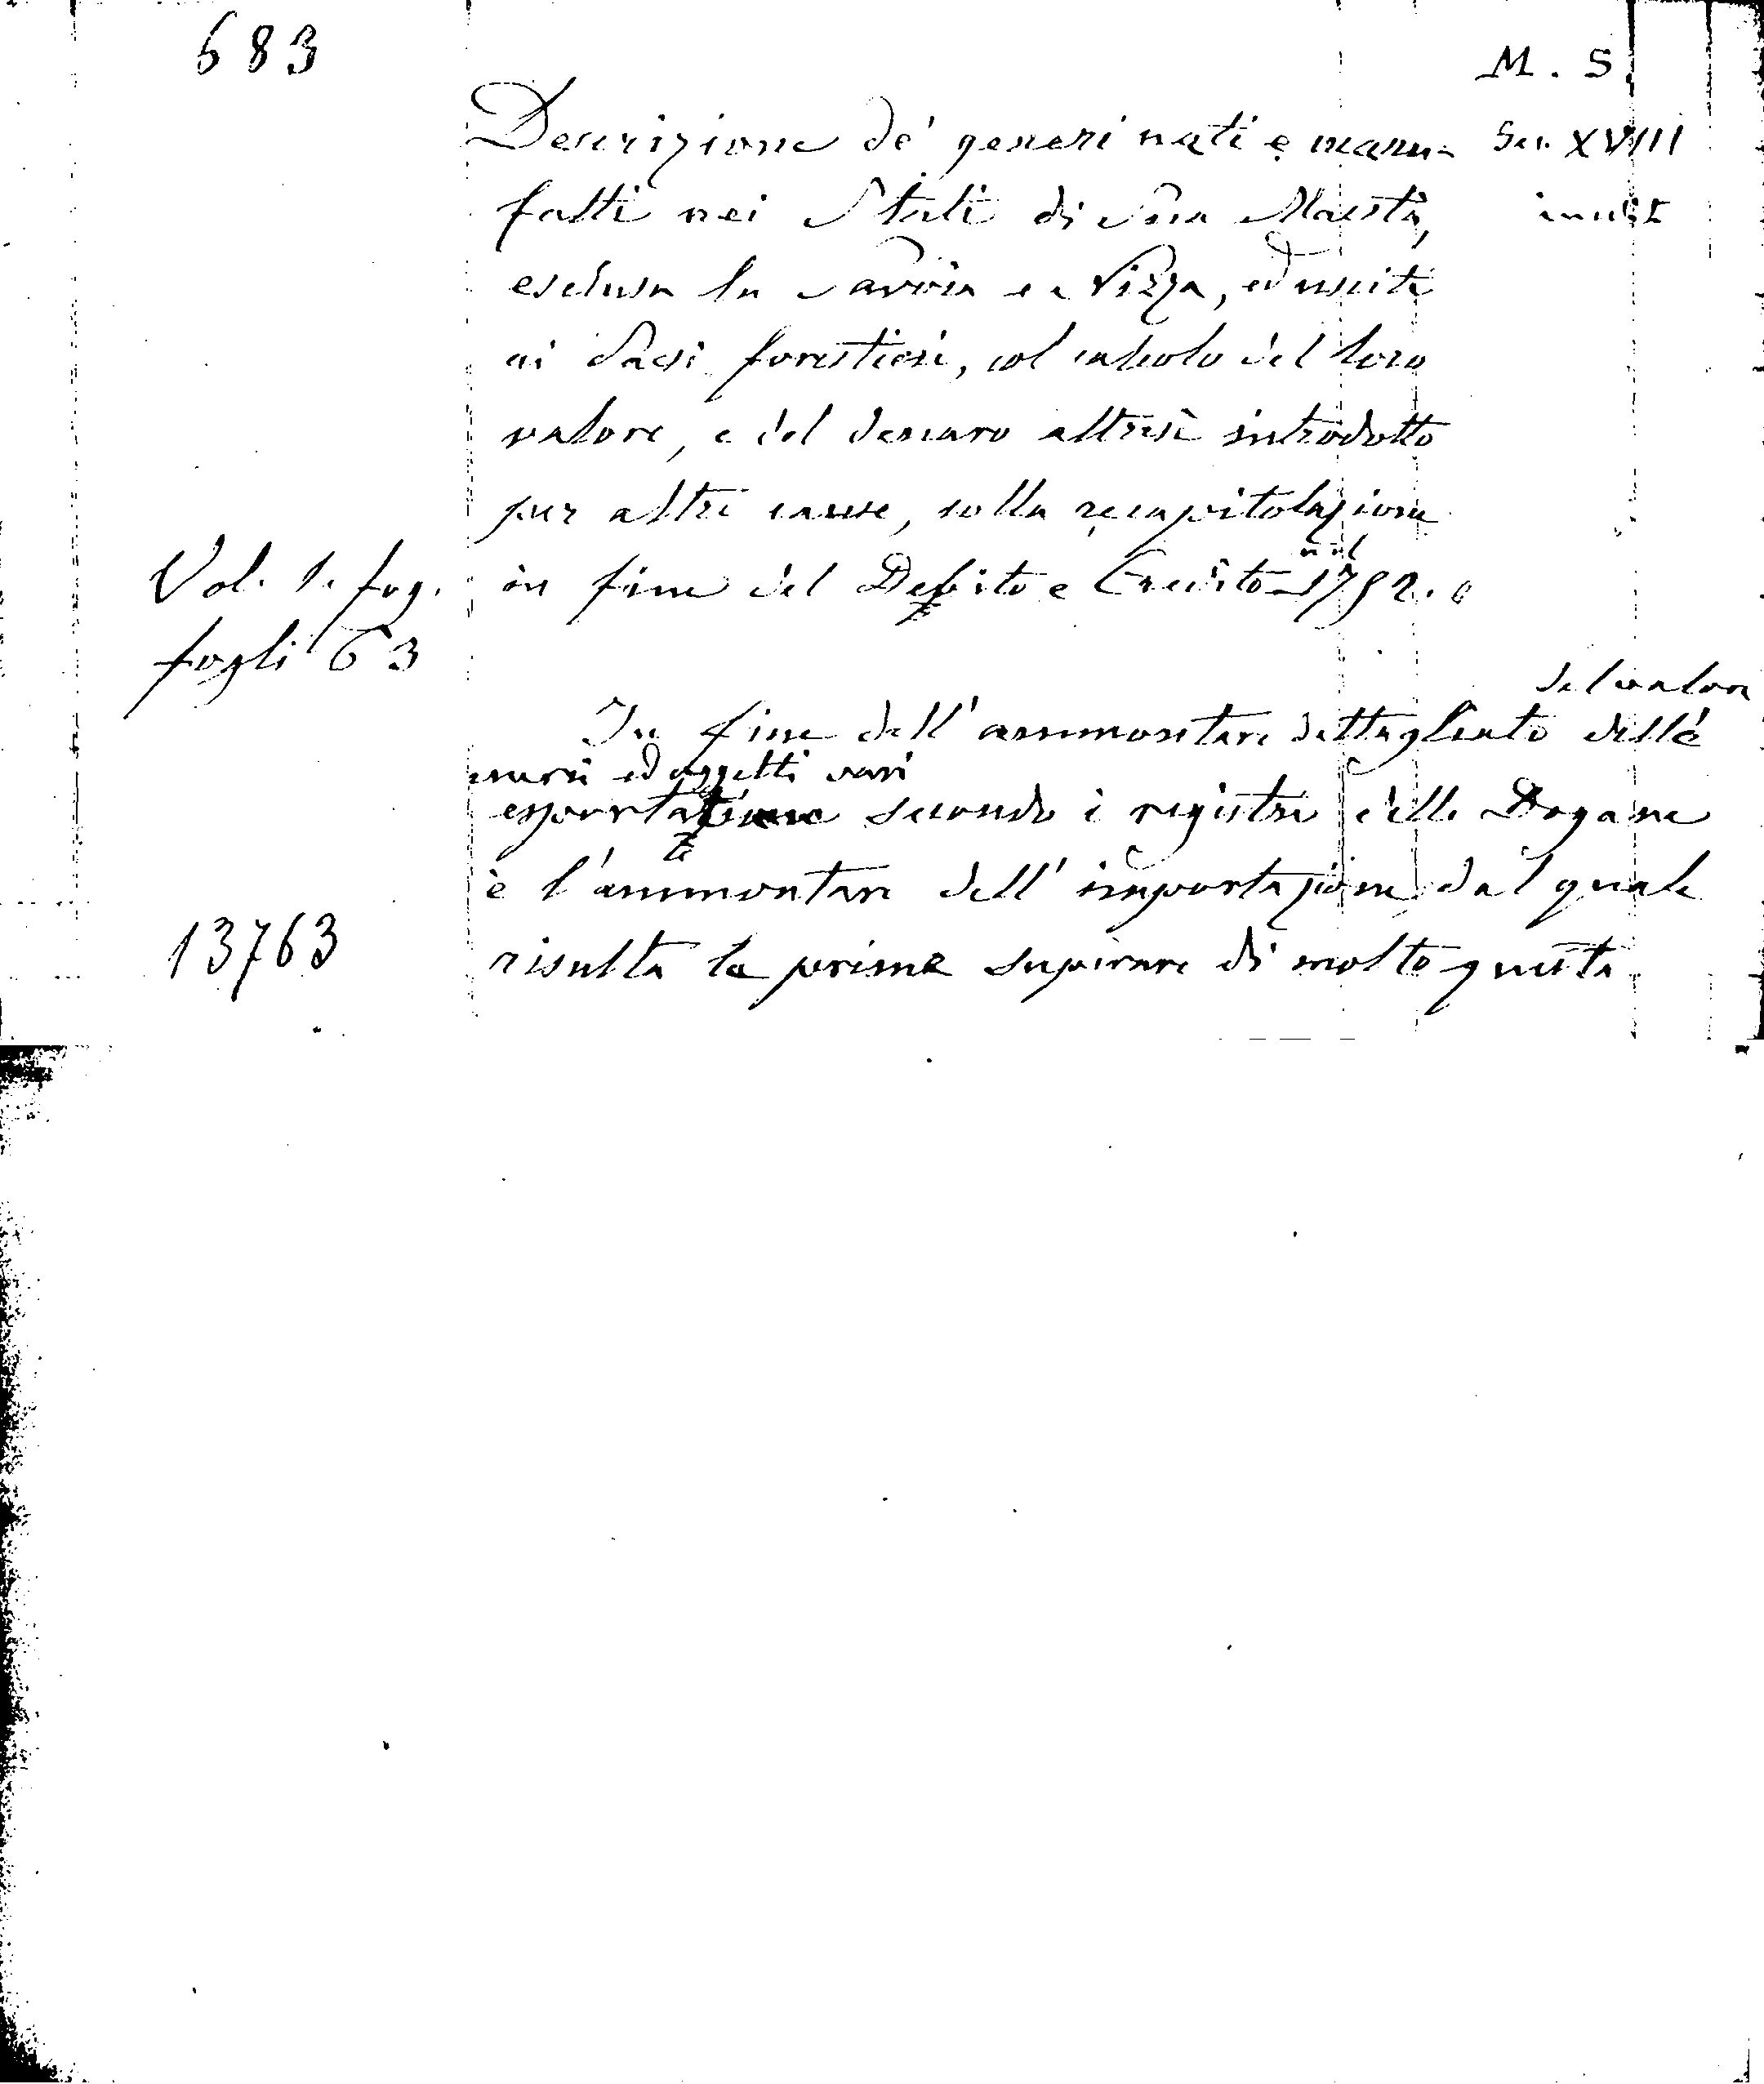 683
M. S.
Descrizione de' generi nati e manu-
Sec. XVIII
fatti nei Stati di Sua Maestà,
esclusa la Savoia e Nizza, ed usciti
ai Paesi forestieri, col calcolo del loro
valore, e del denaro altresì introdotto
per altri cause, colla recapitolazione
Vol. 1. fog.
in fine del Debito e Credito nel 1752.
fogli 63
del valore
In fine dell'ammontare dettagliato delle
merci ed oggetti vari
esportate secondo i registri delle Dogane
è l'ammontare dell'importazione dal quale
13763
risulta la prima superare di molto questa